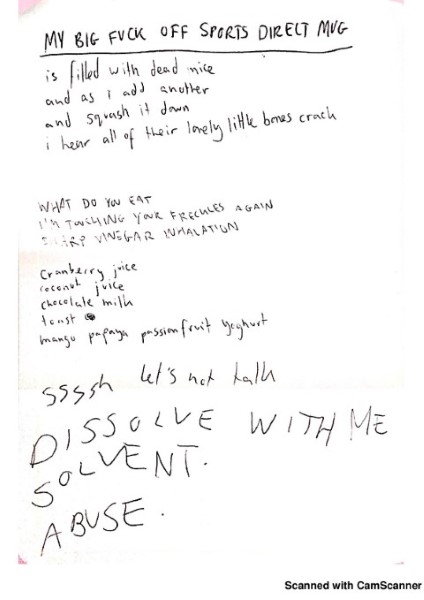 MY BIG FUCK OFF SPORTS DIRECT MUG
is filled with dead mice
and as i add another
and squash it down
i hear all of their lovely little bones crack
WHAT DO YOU EAT
I'M TOUCHING YOUR FRECKLES AGAIN
SHARP VINEGAR INHALATION
cranberry juice
coconut juice
chocolate milk
toast
mango papaya passionfruit yoghurt
sssh let's not talk
DISSOLVE WITH ME
SOLVENT.
ABUSE.
Scanned with CamScanner